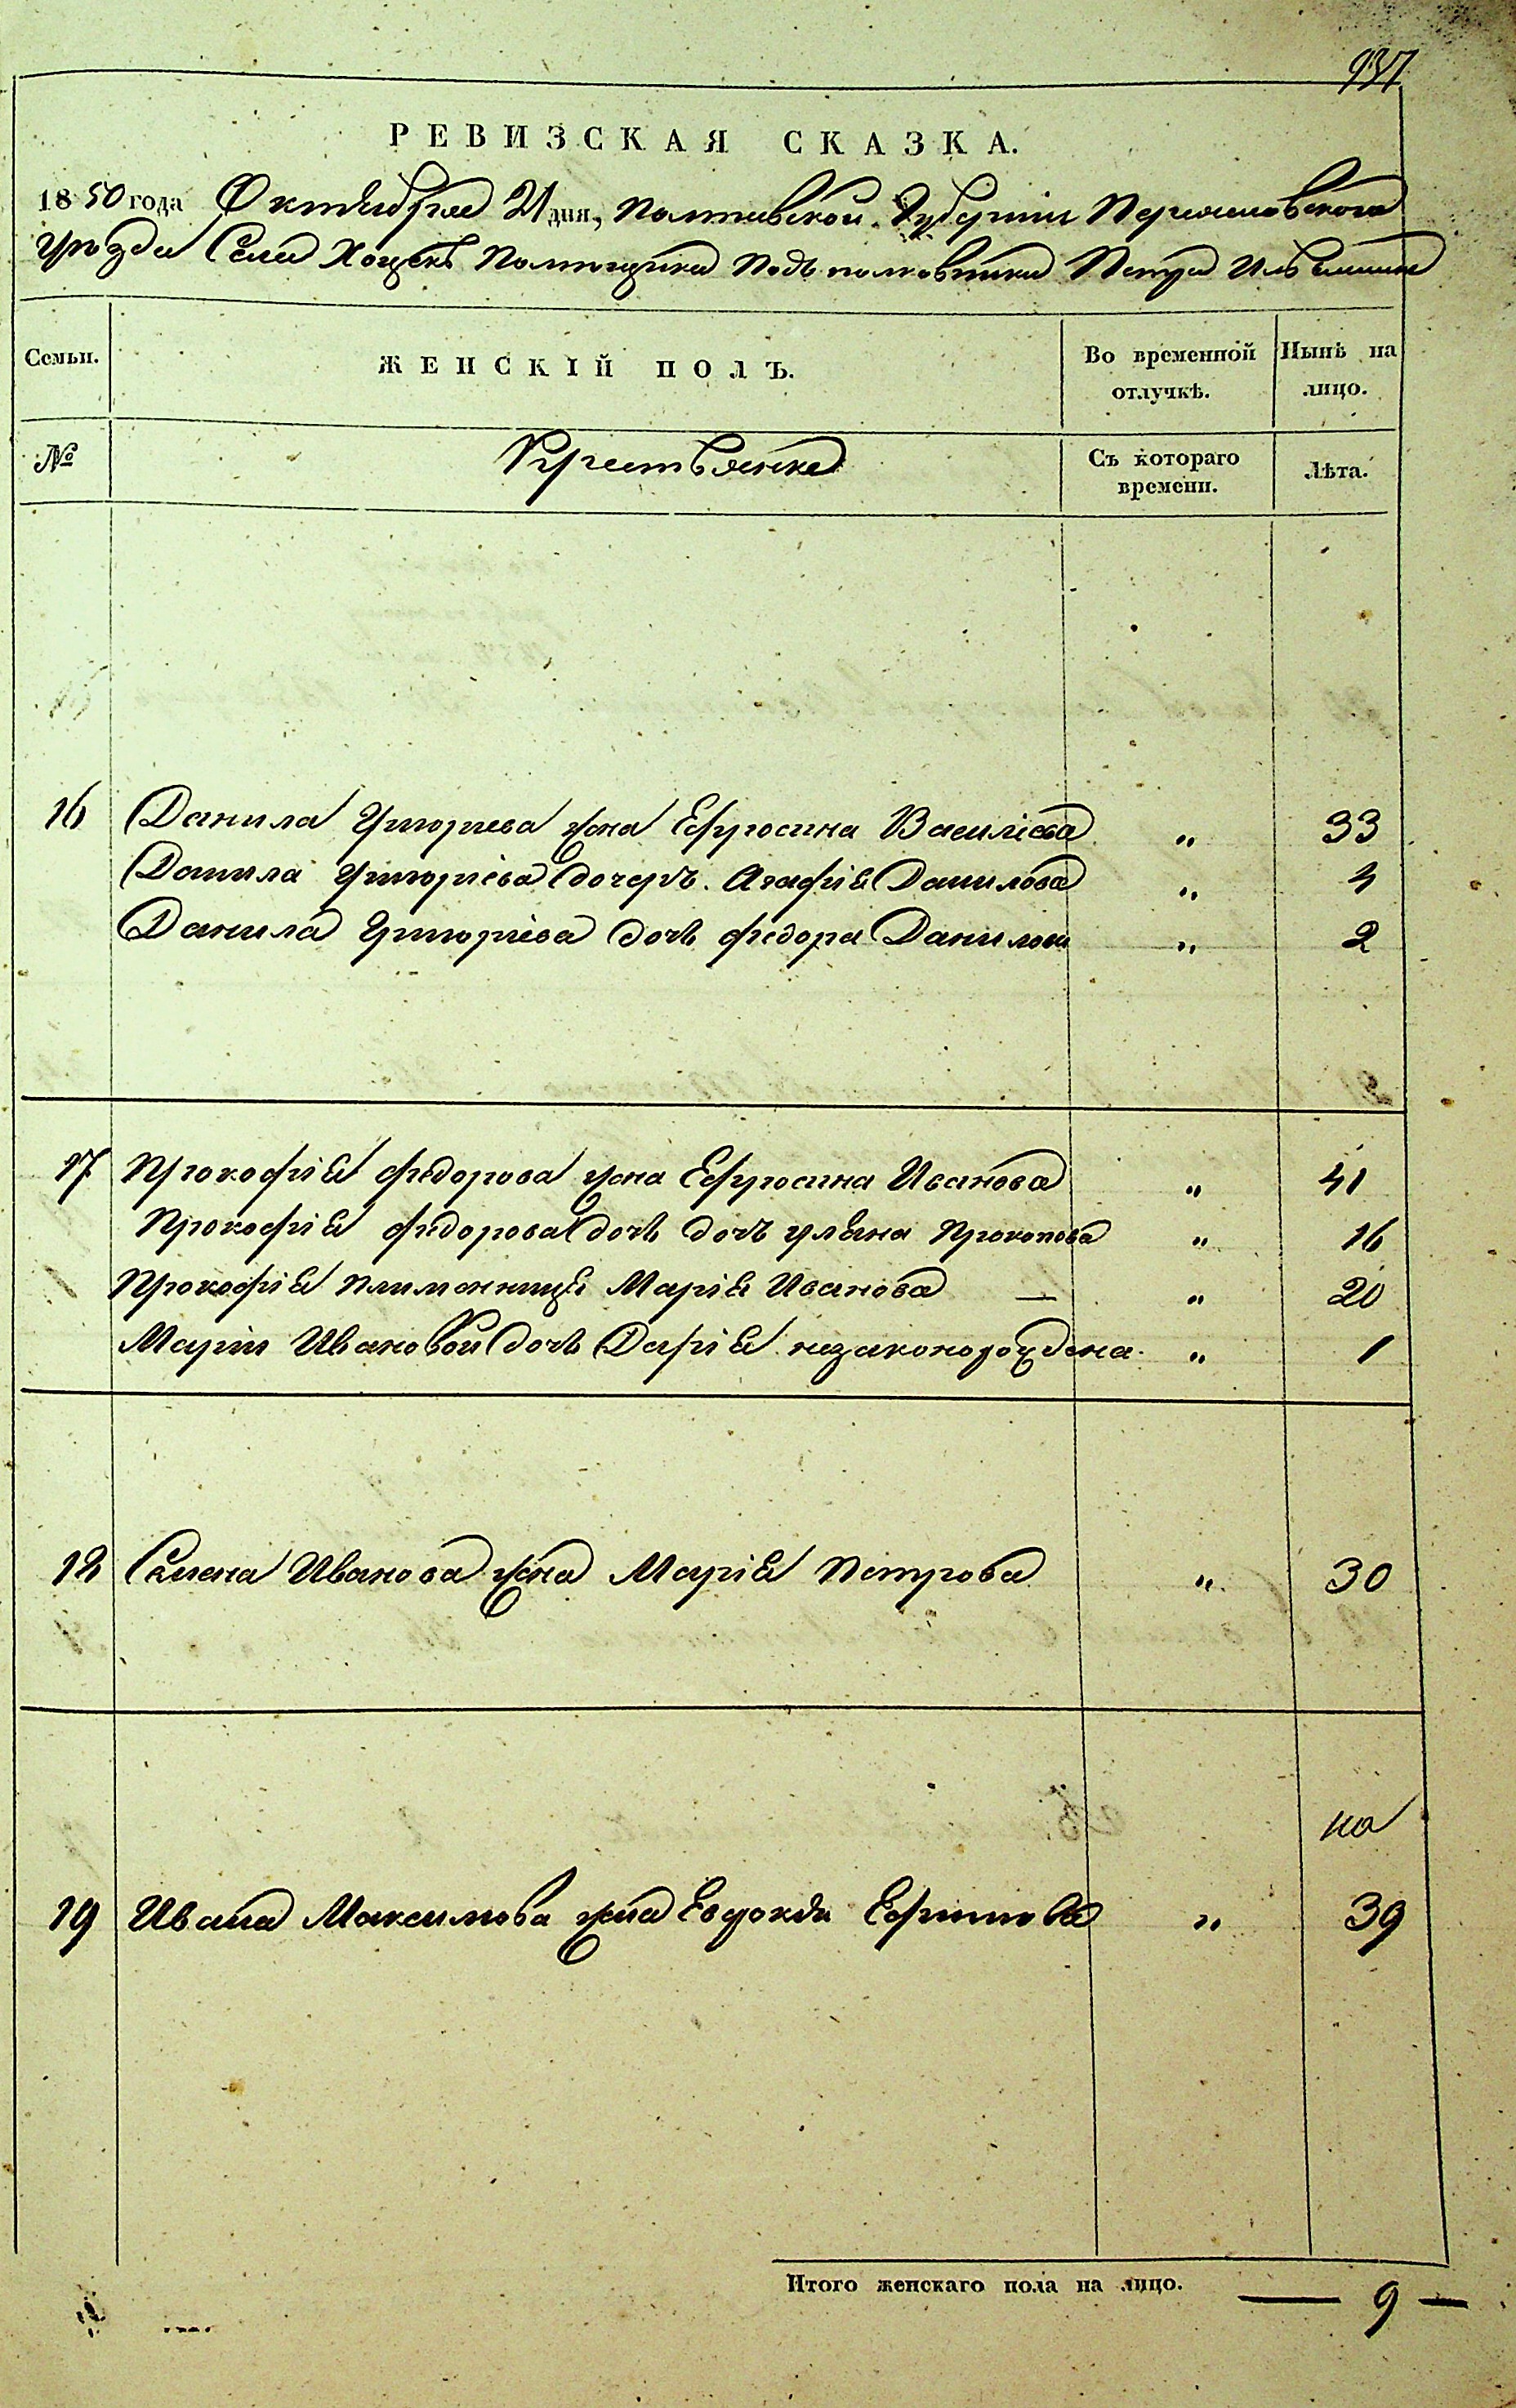 937
РЕВИЗСКАЯ СКАЗКА.
1850 года Октября 21 дня, Полтавской Губернии Переяславского
уезда Села Хоцекъ Помещика Подполковника Петра
Семьи. ЖЕНСКІЙ ПОЛЪ. Во временной отлучкѣ. Нынѣ на лицо.
№ Крестьянка Съ котораго времени. Лѣта.
16 Данила Григорьева жена Ефросина Василіева „ 33
Данила Григоріева дочеръ. Агафія Данилова „ 4
Данила Григоріева дочь Федора Данилова „ 2
17 Прокофія Федорова жена Ефросина Иванова „ 41
Прокофія Федорова дочь дочь уляна Прокопова „ 16
Прокофія племенница Марія Иванова — „ 20
Маріи Ивановой дочь Дарія незаконорождена. „ 1
18 Семена Иванова жена Марія Петрова „ 30
на
19 Ивана Максимова жена Евдокія „ 39
Итого женскаго пола на лицо. — 9 —